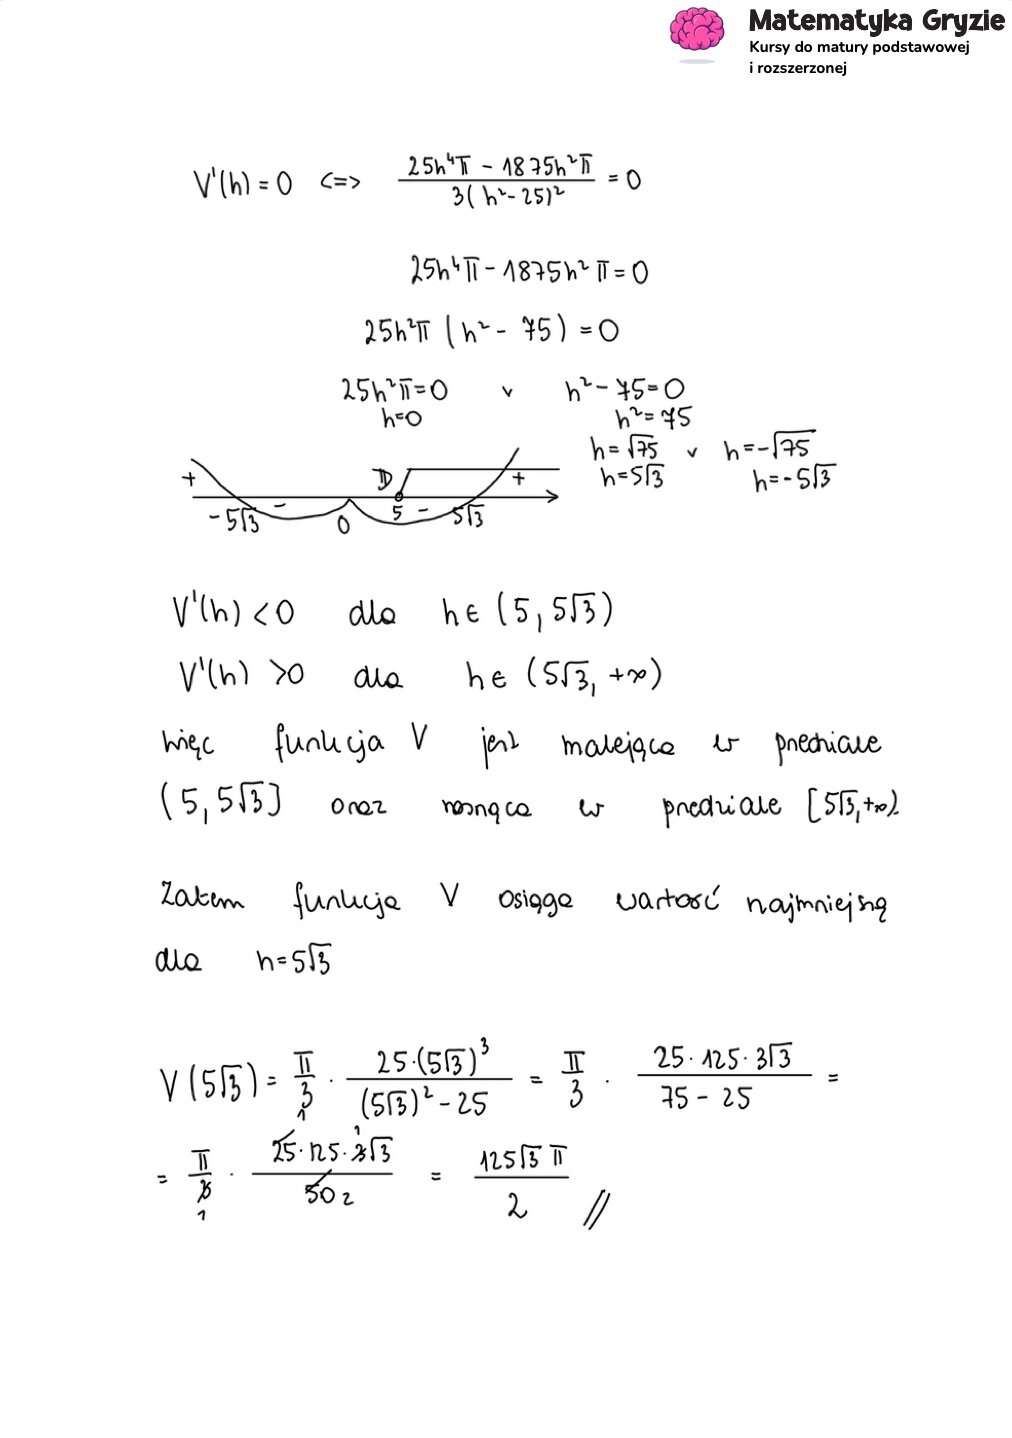 Matematyka Gryzie
Kursy do matury podstawowej
i rozszerzonej
V'(h) = 0 <=> (25h⁴π - 1875h²π)/(3(h² - 25)²) = 0
25h⁴π - 1875h²π = 0
25h²π (h² - 75) = 0
25h²π = 0 v h² - 75 = 0
h=0 h² = 75
h = √75 v h = -√75
h = 5√3 h = -5√3
+ - D - +
-5√3 0 5 5√3
V'(h) < 0 dla h ∈ (5, 5√3)
V'(h) > 0 dla h ∈ (5√3, +∞)
więc funkcja V jest malejąca w przedziale
(5, 5√3] oraz rosnąca w przedziale [5√3, +∞).
Zatem funkcja V osiąga wartość najmniejszą
dla h = 5√3
V(5√3) = π/3 · (25·(5√3)³)/((5√3)² - 25) = π/3 · (25·125·3√3)/(75 - 25) =
= π/3 · (25·125·3√3)/50 = (125√3 π)/2 //